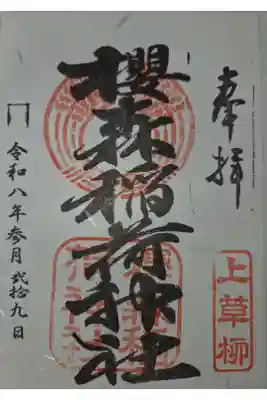 奉拝
上草柳
櫻森稲荷神社
令和八年参月弐拾九日